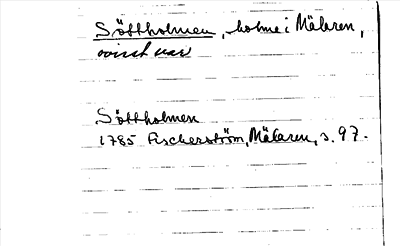 Söttholmen, holme i Mälaren,
ovisst var
Söttholmen
1785 Fischerström, Mälaren, s. 97.